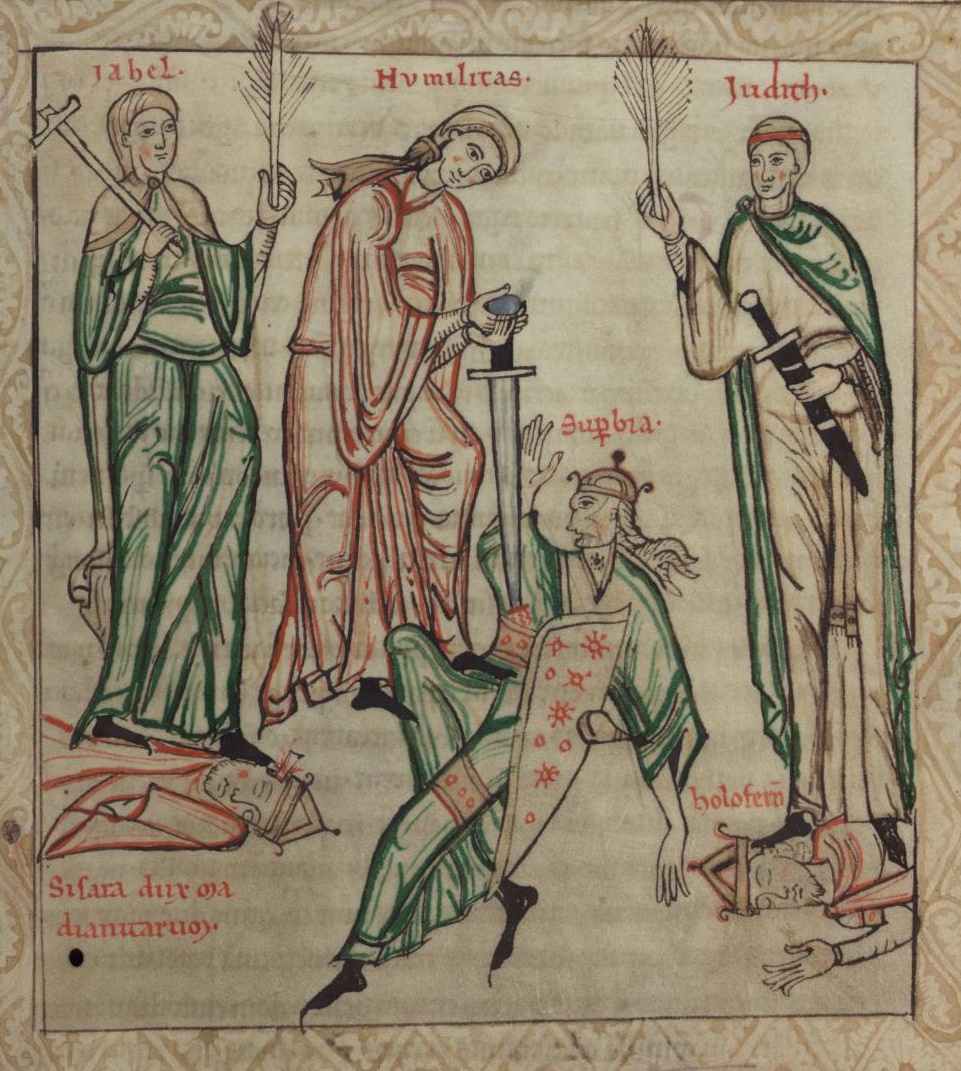 Iahel.
Humilitas.
Judith.
Sup̱bia.
holofern̄
Sisara dux ma
dianitaruꝫ.